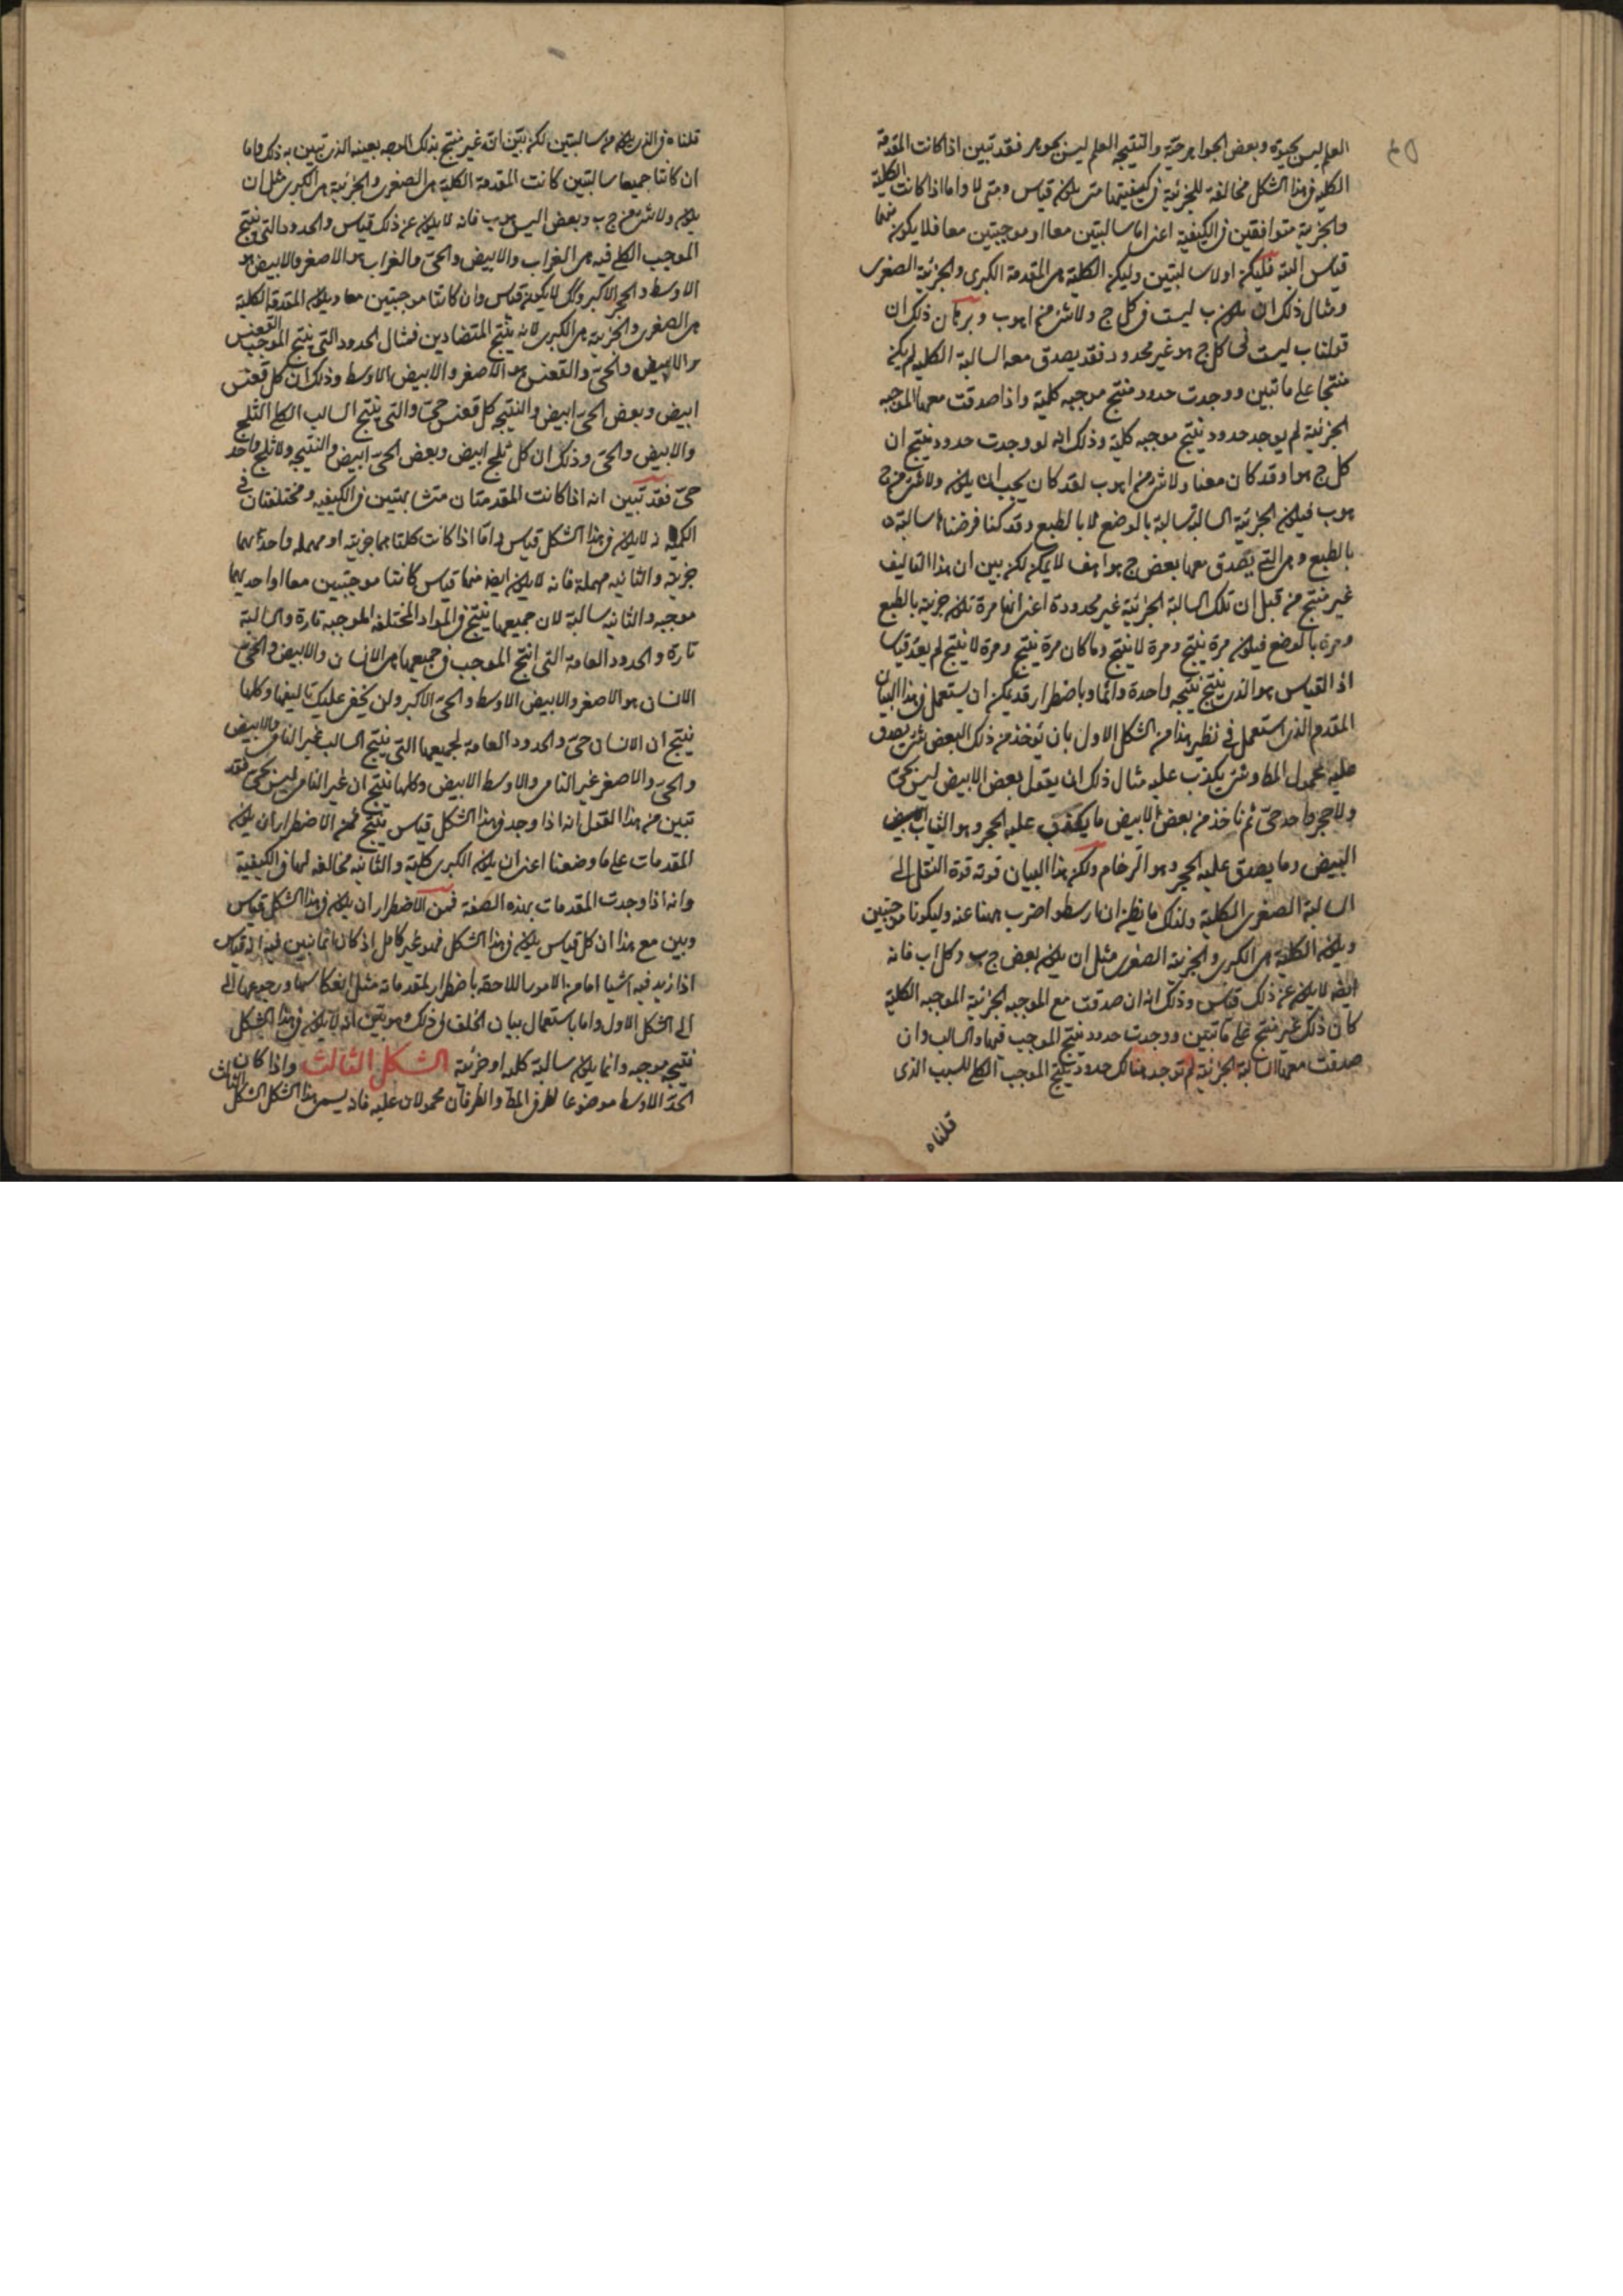 العلم ليس بحيوة وبعض الجواهر حية والنتيجة العلم ليس بجوهر فقد تبين اذا كانت المقدمة
الكلية فى هذا الشكل مخالفة للجزئية فى كيفيتها متى يكون قياس ومتى لا واما اذا كانت الكلية
والجزئية متوافقين فى الكيفية اعنى اما سالبتين معا او موجبتين معا فلا يكون منهما
قياس البتة فليكن اولا سالبتين وليكن الكلية هى المقدمة الكبرى والجزئية الصغرى
ومثال ذلك ان يكون ب ليست فى كل ج ولا شئ من ا هو ب وبرهان ذلك ان
قولنا ب ليست فى كل ج هو غير محدود فقد يصدق معه السالبة الكلية لم يكن
منتجا على ما تبين ووجدت حدود تنتج موجبه كلية واذا صدقت معها الموجبه
الجزئية لم يوجد حدود ينتج موجبه كلية وذلك انه لو وجدت حدود ينتج ان
كل ج هو ا وقد كان معنا ولا شئ من ا هو ب لقد كان يجب ان يكون ولا شئ من ج
هو ب فيكون الجزئية السالبة سالبة بالوضع لا بالطبع وقد كنا فرضناها سالبة
بالطبع وهى التى يصدق معها بعض ج هو ا هف لا يمكن لكن بين ان هذا التاليف
غير منتج من قبل ان تلك السالبة الجزئية غير محدودة اعنى انها مرة تكون جزئية بالطبع
ومرة بالوضع فيكون مرة ينتج ومرة لا ينتج وما كان مرة ينتج ومرة لا ينتج لم يعد قياسا
اذ القياس هو الذى ينتج نتيجه واحدة دائما وباضطرار وقد يمكن ان يستعمل فى هذا البيان
المقدم الذى استعمل فى نظير هذا من الشكل الاول بان نوخذ من ذلك البعض شئ يصدق
عليه محمول المط وشئ يكذب عليه مثال ذلك ان يقول بعض الابيض ليس بحى
ولا حجر واحد حى ثم ناخذ من بعض الابيض ما يكذب عليه الحجر وهو الثياب
البيض وما يصدق عليه الحجر وهو الرخام ولكن هذا البيان قوته قوة النقل الى
السالبة الصغرى الكلية ولذلك ما يظن ان ارسطو اضرب ههنا عنه وليكونا موجبتين
ويكون الكلية هى الكبرى والجزئية الصغرى مثل ان يكون بعض ج ب وكل ا ب فانه
ايضا لا يكون عن ذلك قياس وذلك انه ان صدقت مع الموجبه الجزئية الموجبه الكلية
كان ذلك غير منتج على ما تبين ووجدت حدود ينتج الموجب فيها والسالب وان
صدقت معها السالبة الجزئية لم توجد هنالك حدود ينتج الموجب الكلى للسبب الذى
قلناه
قلناه فى الذى يكون من سالبتين لكن تبين انه غير منتج بذلك الوجه بعينه الذى تبين به ذلك واما
ان كانتا جميعا سالبتين كانت المقدمة الكلية هى الصغرى والجزئية هى الكبرى مثل ان
يكون ولا شئ من ج ب وبعض ا ليس هو ب فانه لا يكون عن ذلك قياس والحدود التى ينتج
الموجب الكلى فيه هى الغراب والابيض والحى والغراب هو الاصغر والابيض هو
الاوسط والحى الاكبر ولا يكون قياس وان كانتا موجبتين معا ويكون المقدمة الكلية
هى الصغرى والجزئية هى الكبرى لانه ينتج المتضادين فمثال الحدود التى ينتج الموجب القعنس
والابيض والحى والقعنس هو الاصغر والابيض الاوسط وذلك ان كل قعنس
ابيض وبعض الحى ابيض والنتيجه كل قعنس حى والتى ينتج السالب الكلى الثلج
والابيض والحى وذلك ان كل ثلج ابيض وبعض الحى ابيض والنتيجه ولا ثلج واحد
حى فقد تبين انه اذا كانت المقدمتان متشابهتين فى الكيفيه ومختلفتان فى
الكمية انه لا يكون فى هذا الشكل قياس واما اذا كانت كلتاهما جزئية او مهمله واحداهما
جزئية والثانيه مهملة فانه لا يكون ايضا منهما قياس كانتا موجبتين معا او احديهما
موجبه والثانيه سالبة لان جميعها ينتج فى المواد المختلفه الموجبه تارة والسالبة
تارة والحدود العامة التى انتج الموجب فى جميعها هى الانسان والابيض والحى
الانسان هو الاصغر والابيض الاوسط والحى الاكبر ولن يخفى عليك تاليفها وكلها
ينتج ان الانسان حى والحدود العامة لجميعها التى ينتج السالب غير النامى والابيض
والحى والاصغر غير النامى والاوسط الابيض وكلها ينتج ان غير النامى ليس بحى فقد
تبين من هذا القول انه اذا وجد فى هذا الشكل قياس ينتج فمن الاضطرار ان يكون
المقدمات على ما وضعنا اعنى ان يكون الكبرى كلية والثانيه مخالفه لها فى الكيفية
وانه اذا وجدت المقدمات بهذه الصفة فمن الاضطرار ان يكون فى هذا الشكل قياس
وبين مع هذا ان كل قياس يكون فى هذا الشكل فهو غير كامل اذ كان انما تبين فيه انه قياس
اذا زيد فيه اشيا اما من الامور اللاحقه باضطرار لمقدماته مثل انعكاسها ورجوعها الى
الى الشكل الاول واما باستعمال بيان الخلف فى ذلك وهو تبين انه لا يكون فى هذا الشكل
نتيجه موجبه وانما يكون سالبة كلية او جزئية الشكل الثالث واذا كان
الحد الاوسط موضوعا لطرفى المط والطرفان محمولان عليه فانه يسمى هذا الشكل الشكل الثالث